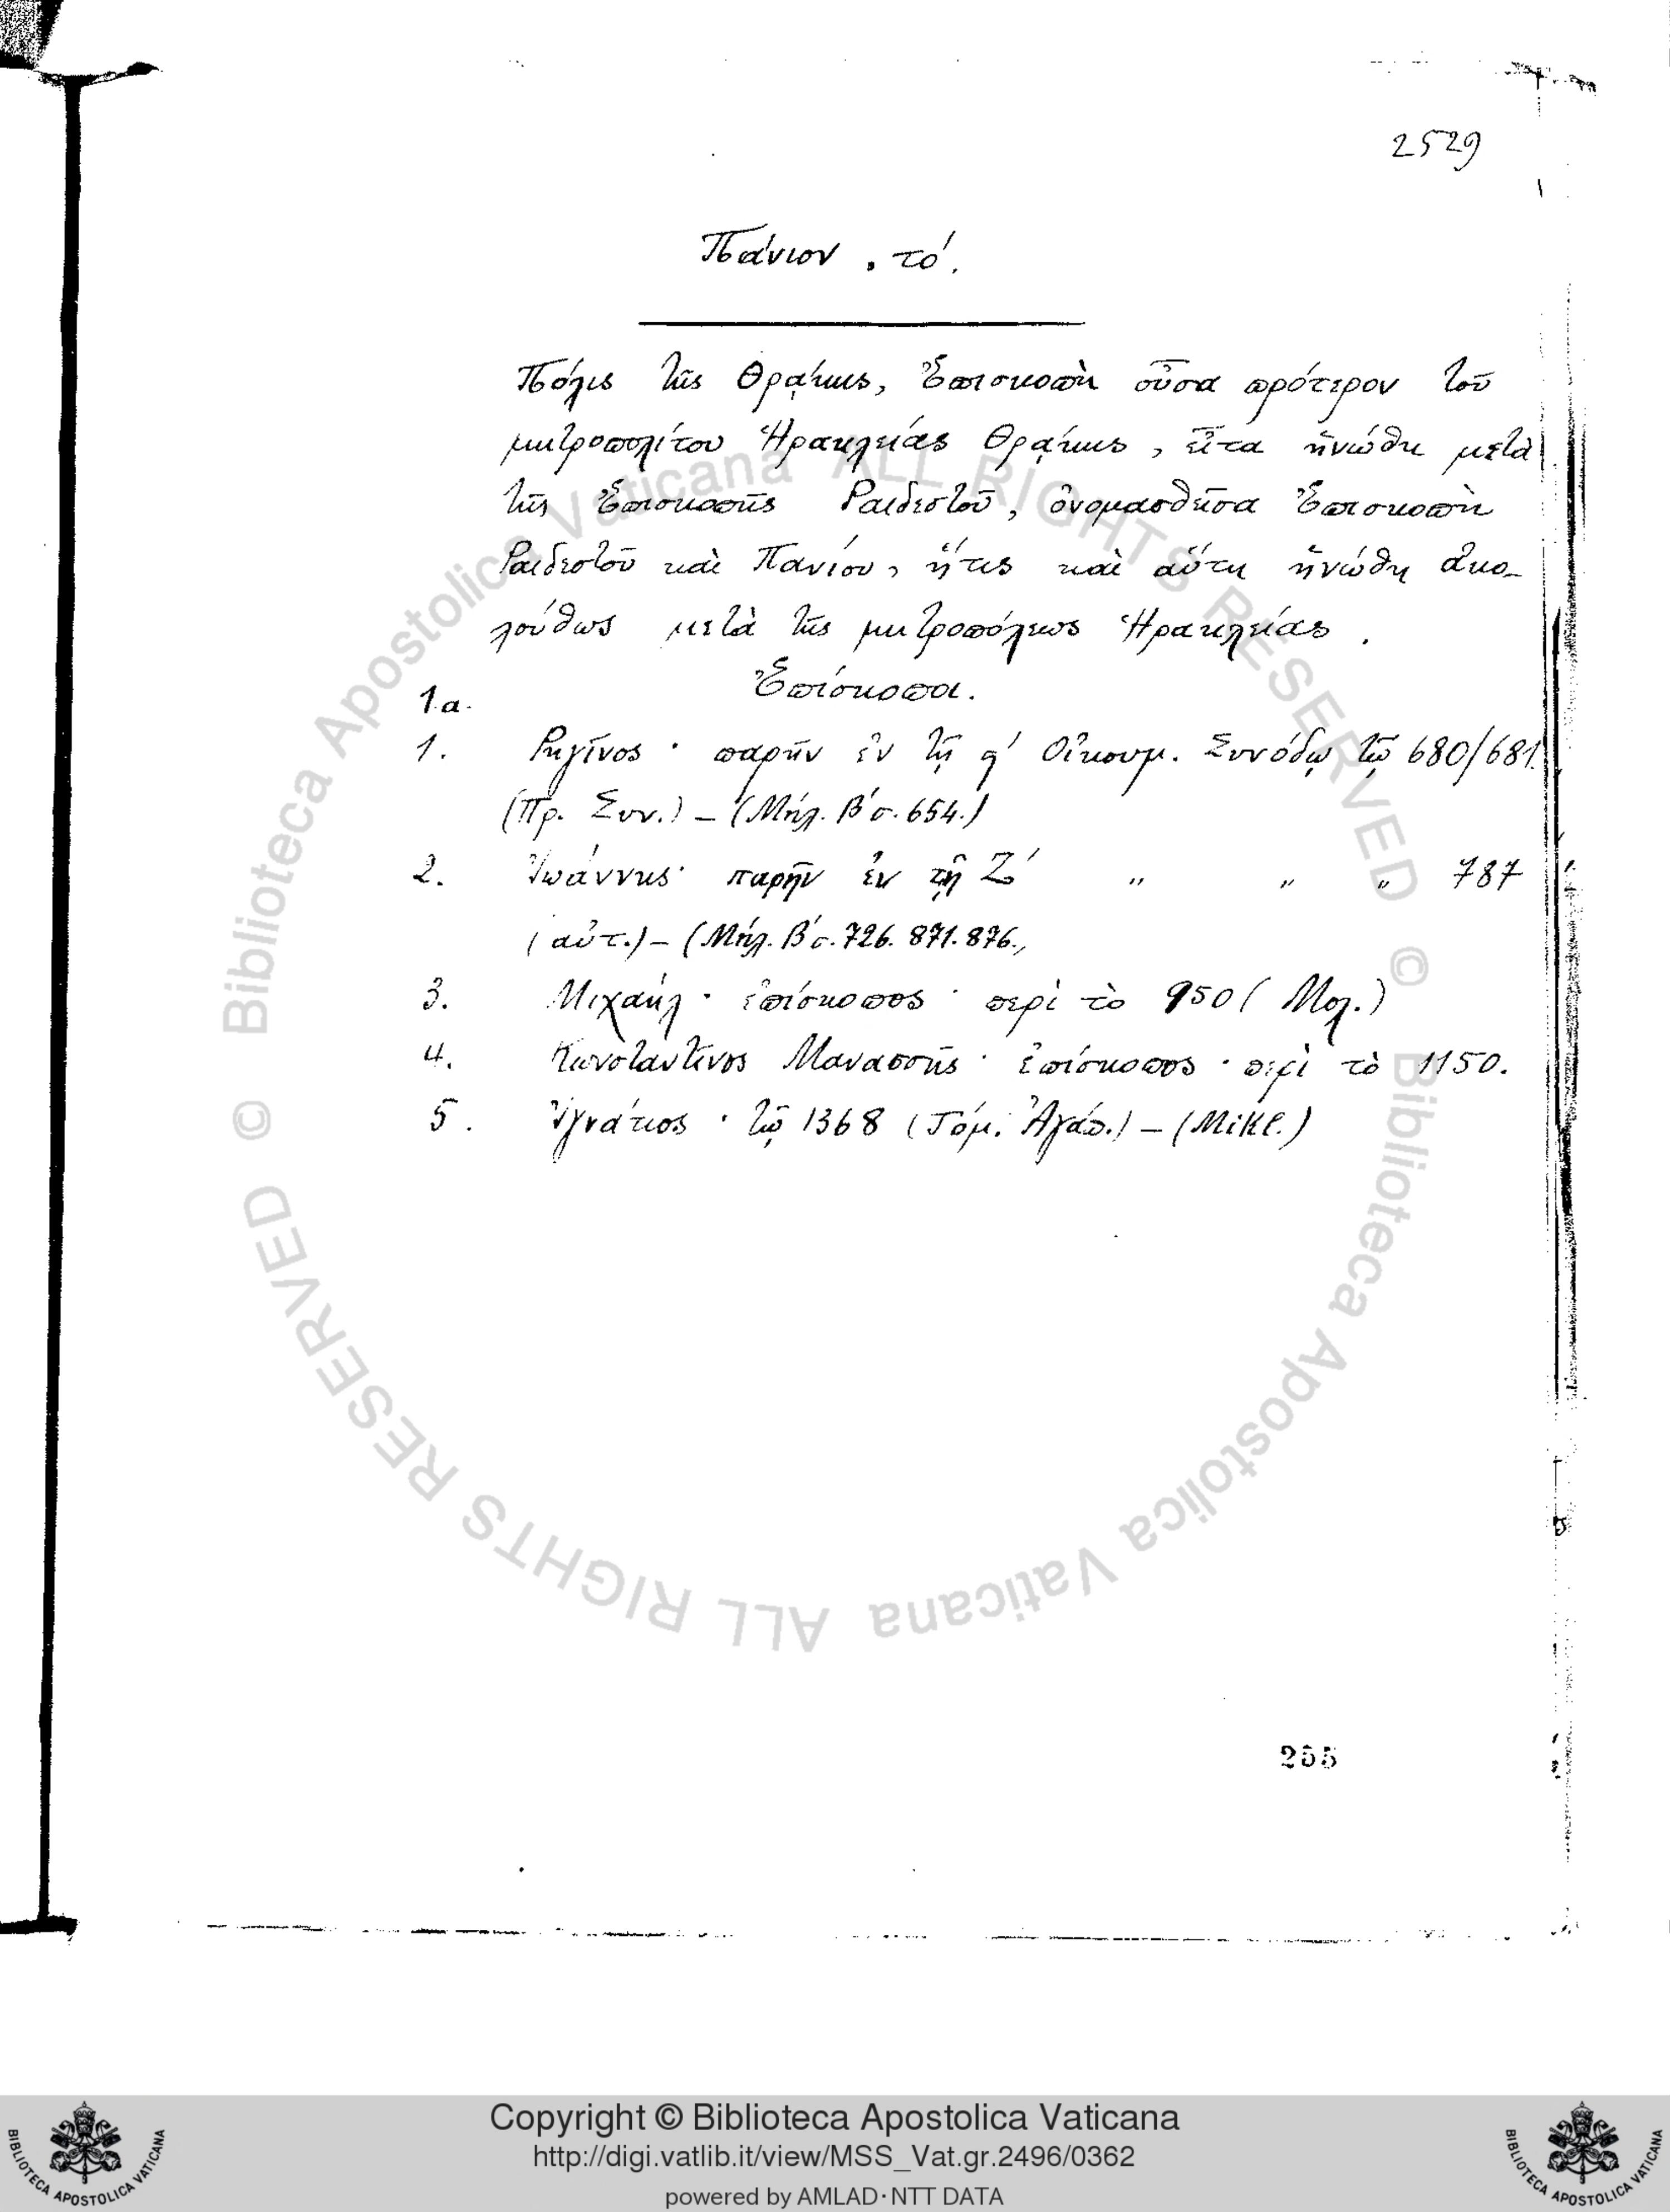 2529
Πάνιον, τό.
Πόλις τῆς Θρᾴκης, Ἐπισκοπὴ οὖσα πρότερον τοῦ
μητροπολίτου Ἡρακλείας Θρᾴκης, εἶτα ἡνώθη μετὰ
τῆς Ἐπισκοπῆς Ῥαιδεστοῦ, ὀνομασθεῖσα Ἐπισκοπὴ
Ῥαιδεστοῦ καὶ Πανίου, ἥτις καὶ αὕτη ἡνώθη ἀκο-
λούθως μετὰ τῆς μητροπόλεως Ἡρακλείας.
Ἐπίσκοποι.
1α.
1. Ῥηγῖνος· παρῆν ἐν τῇ ϛ′ Οἰκουμ. Συνόδῳ τῷ 680/681.
(Πρ. Συν.) – (Μήλ. Β′ σ. 654.)
2. Ἰωάννης· παρῆν ἐν τῇ Ζ′ " " " 787
(αὐτ.) – (Μήλ. Β′ σ. 726. 871. 876.,
3. Μιχαήλ· ἐπίσκοπος· περὶ τὸ 950 (Μολ.)
4. Κωνσταντῖνος Μανασσῆς· ἐπίσκοπος· περὶ τὸ 1150.
5. Ἰγνάτιος· τῷ 1368 (Τόμ. Ἀγάπ.) – (Mikl.)
255
© Biblioteca Apostolica Vaticana ALL RIGHTS RESERVED © Biblioteca Apostolica Vaticana ALL RIGHTS RESERVED
BIBLIOTECA APOSTOLICA VATICANA
Copyright © Biblioteca Apostolica Vaticana
http://digi.vatlib.it/view/MSS_Vat.gr.2496/0362
powered by AMLAD·NTT DATA
BIBLIOTECA APOSTOLICA VATICANA